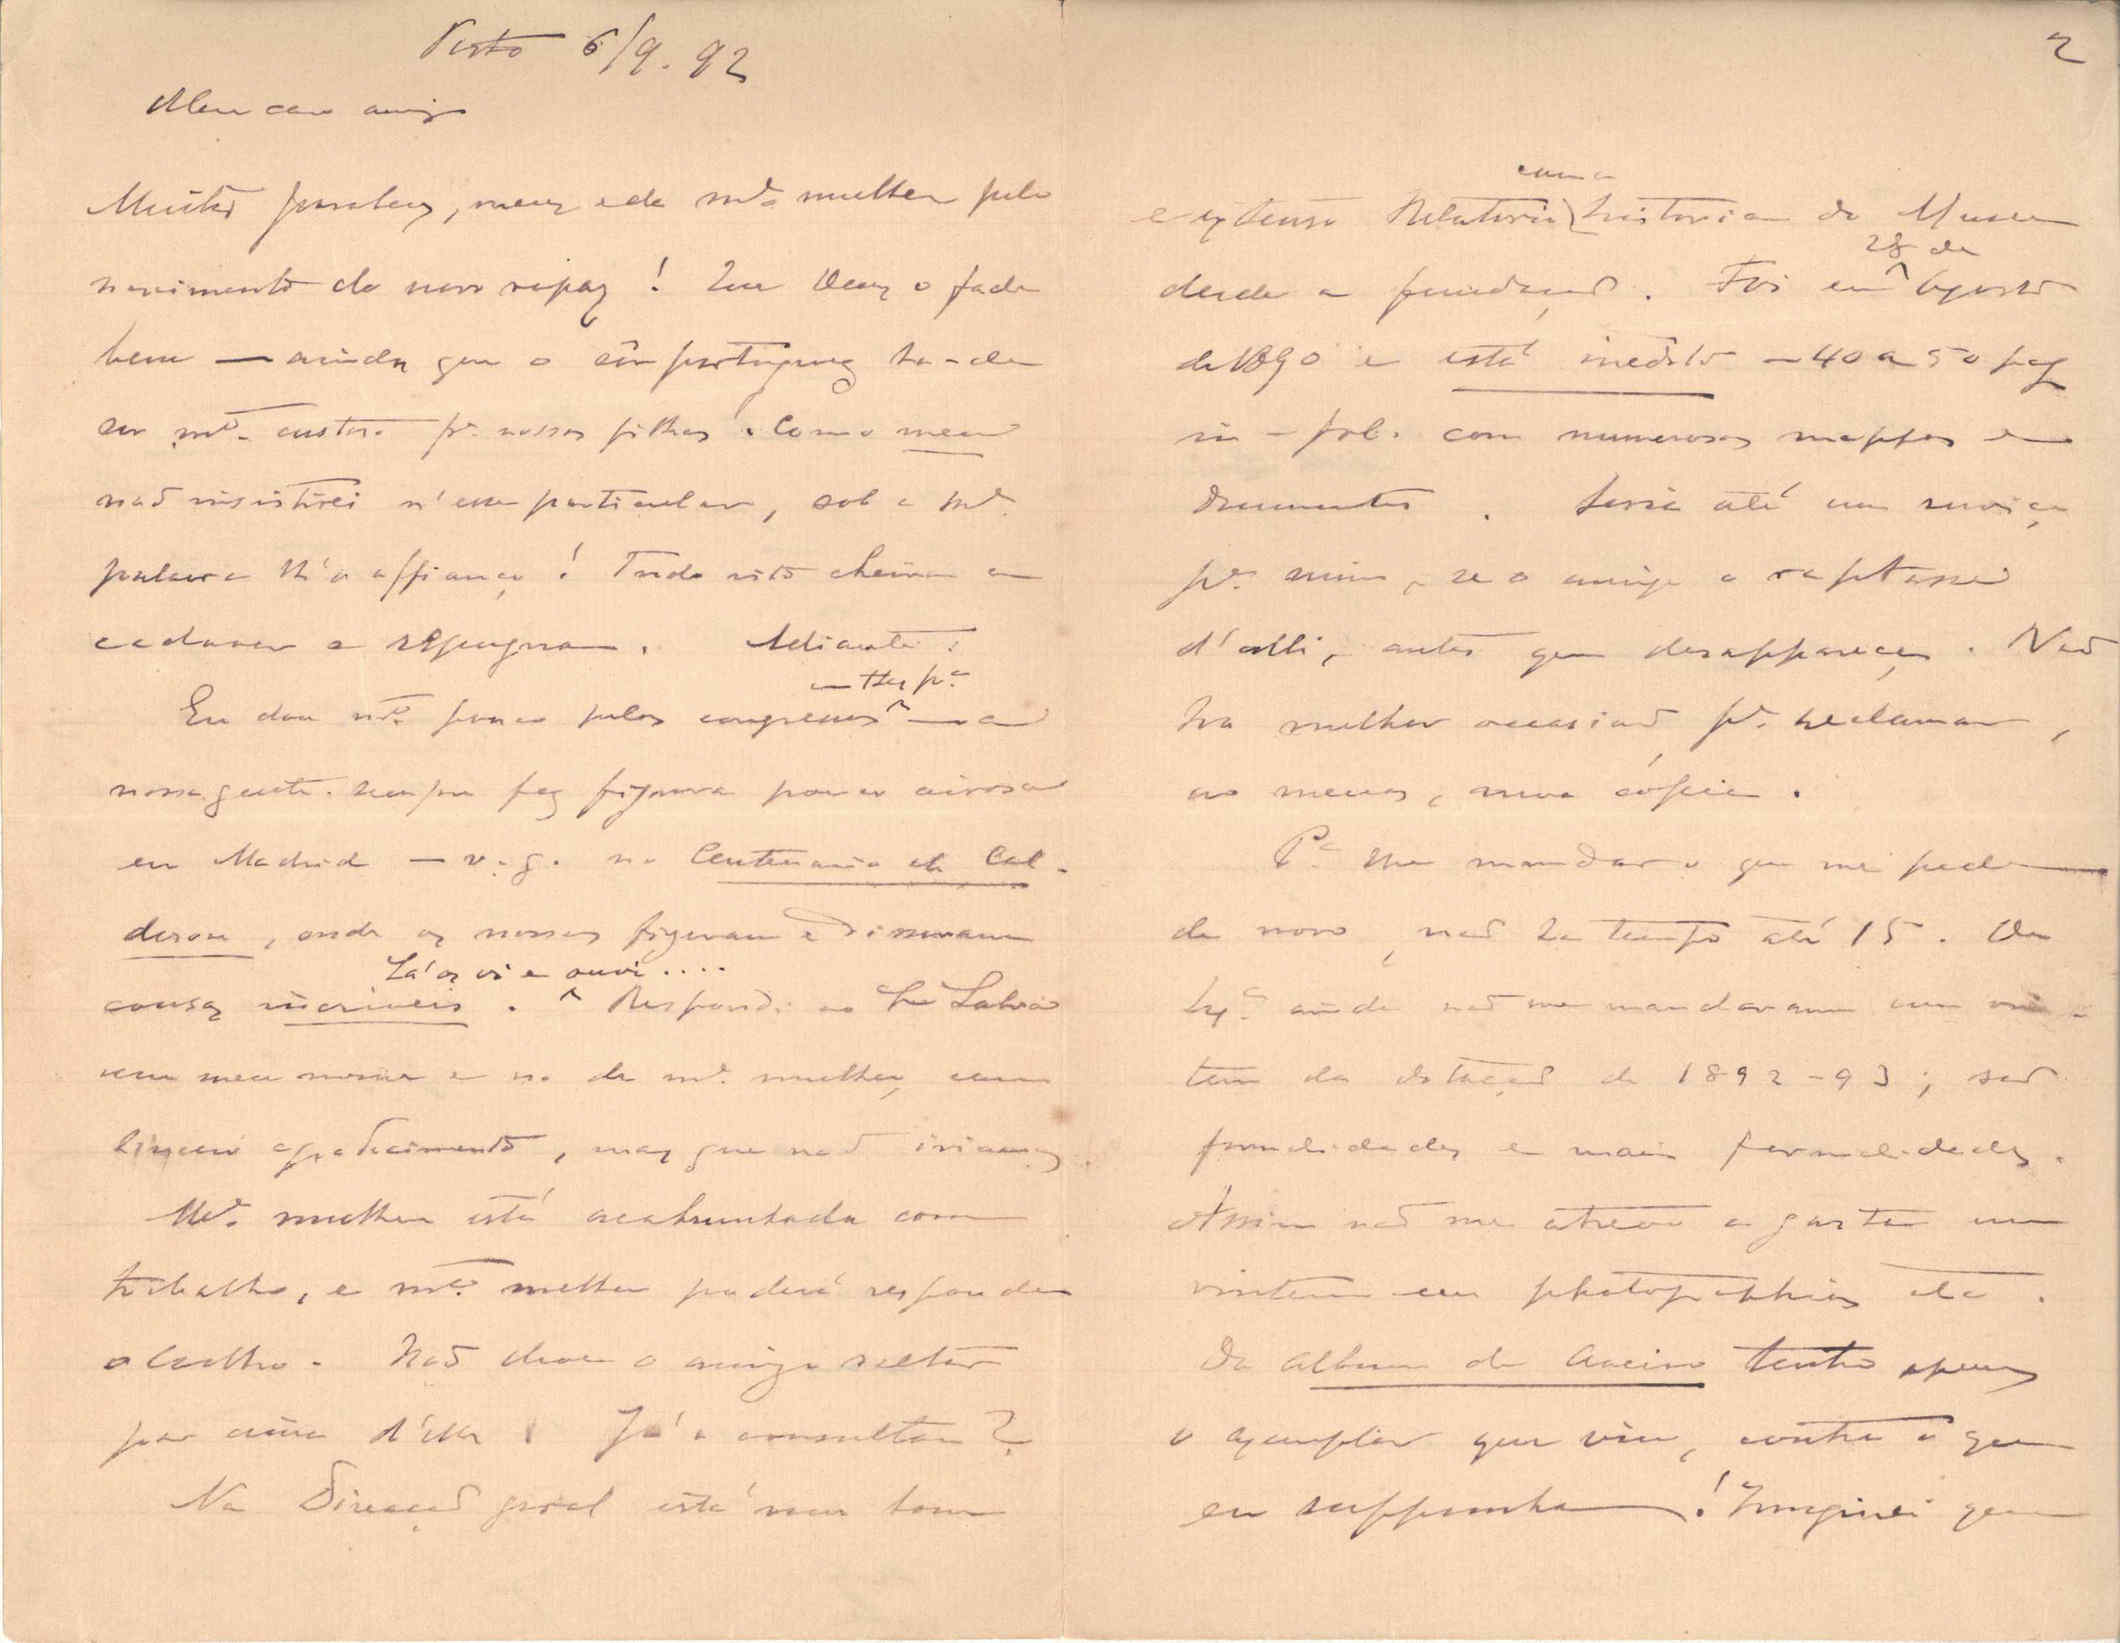 Porto 6/9. 92
Meu caro amigo
Muitos parabens, meus e de mª mulher pelo
nascimento do novo rapaz! Que Deus o fade
bem — ainda que o céu portuguez ha-de
ser mtº custoso pª nossos filhos. Com o meu
não insistirei n'esse particular, sob a mª
palavra lh'o affianço! Tudo isto cheira a
cadaver e repugna. Adiante:
Eu dou mtº pouco pelos congressos — a
nossa gente sempre fez figura pouco airosa
em Madrid — v. g. no Centenario de Cal-
deron, onde os nossos fizeram e disseram
Lá os vi e ouvi....
cousas incriveis. Respondi ao Labra
em meu nome e no de mª mulher, com
sincero agradecimento, mas que não iriamos
Mª mulher está acabrunhada com
trabalho, e mtº melhor poderá responder
o Coelho. Não deve o amigo saltar
por cima d'elle! Já o consultou?
Na Direcção geral está um bom
2
com a
e extenso Relatorio historia do Museu
28 de
desde a fundação. Foi em Agosto
de 1890 e está inedito — 40 a 50 pag
in-fol. com numerosos mappas e
documentos. Seria até um serviço
pª mim, se o amigo o raptasse
d'alli, antes que desappareça. Não
ha melhor occasião pª reclamar,
ao menos, uma cópia.
Pª lhe mandar o que me pede
de novo, não ha tempo até 15. De
Lxª ainda não me mandaram um vin-
tem da dotação de 1892-93; são
formalidades e mais formalidades.
Assim não me atrevo a gastar um
vintem em photographias etc.
Do album de Aveiro tenho apenas
o exemplar que viu, contra o que
eu suppunha! Imaginei que